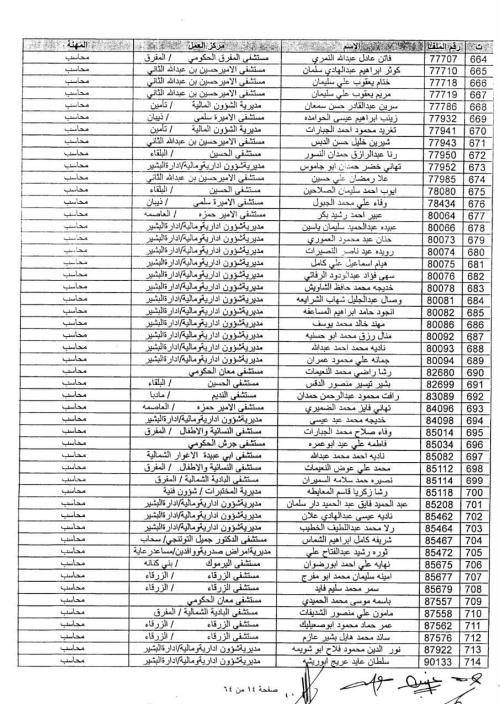 ت رقم الملف الاسم مركز العمل المهنة
664 77707 فاتن عادل عبدالله النمري مستشفى المفرق الحكومي / المفرق محاسب
665 77710 كوثر ابراهيم عبدالهادي سلمان مستشفى الاميرحسين بن عبدالله الثاني محاسب
666 77718 ختام يعقوب علي سليمان مستشفى الاميرحسين بن عبدالله الثاني محاسب
667 77719 مريم يعقوب علي سليمان مستشفى الاميرحسين بن عبدالله الثاني محاسب
668 77786 سرين عبدالقادر حسن سمعان مديرية الشؤون المالية / تأمين محاسب
669 77932 زينب ابراهيم عيسى الحوامده مستشفى الاميرة سلمى / ذيبان محاسب
670 77941 تغريد محمود احمد الجبارات مديرية الشؤون المالية / تأمين محاسب
671 77943 شيرين خليل حسن الدبس مستشفى الاميرحسين بن عبدالله الثاني محاسب
672 77950 رنا عبدالرازق حمدان النسور مستشفى الحسين / البلقاء محاسب
673 77952 تهاني خضر حمدان ابو جاموس مديريةشؤون اداريةومالية/ادارةالبشير محاسب
674 77985 علا رمضان علي حسين مستشفى الاميرحسين بن عبدالله الثاني محاسب
675 78080 ايوب احمد سليمان الصلاحين مستشفى الحسين / البلقاء محاسب
676 78434 وفاء علي محمد الجبول مستشفى الاميرة سلمى / ذيبان محاسب
677 80064 عبير احمد رشيد بكر مستشفى الامير حمزه / العاصمه محاسب
678 80066 عبيده عبدالحميد سليمان ياسين مديريةشؤون اداريةومالية/ادارةالبشير محاسب
679 80073 حنان عيد محمود العموري مديريةشؤون اداريةومالية/ادارةالبشير محاسب
680 80074 رويده عيد ناصر النصيرات مديريةشؤون اداريةومالية/ادارةالبشير محاسب
681 80075 هيام اسماعيل علي كامل مديريةشؤون اداريةومالية/ادارةالبشير محاسب
682 80076 سهى فؤاد عبدالودود الرفاتي مديريةشؤون اداريةومالية/ادارةالبشير محاسب
683 80078 خديجه محمد حافظ الشاويش مديريةشؤون اداريةومالية/ادارةالبشير محاسب
684 80081 وصال عبدالجليل شهاب الشرايعه مديريةشؤون اداريةومالية/ادارةالبشير محاسب
685 80082 انجود حامد ابراهيم المساعفه مديريةشؤون اداريةومالية/ادارةالبشير محاسب
686 80086 مهند خالد محمد يوسف مديريةشؤون اداريةومالية/ادارةالبشير محاسب
687 80092 منال رزق محمد ابو حسنيه مديريةشؤون اداريةومالية/ادارةالبشير محاسب
688 80093 ناديه محمد احمد عبدالله مديريةشؤون اداريةومالية/ادارةالبشير محاسب
689 80094 جمانه علي محمود عمران مديريةشؤون اداريةومالية/ادارةالبشير محاسب
690 82680 رشا راضي محمد النعيمات مستشفى معان الحكومي محاسب
691 82699 بشير تيسير منصور الدقس مستشفى الحسين / البلقاء محاسب
692 83089 رافت محمود عبدالرحمن حمدان مستشفى النديم / مادبا محاسب
693 84096 تهاني فايز محمد الضميري مستشفى الامير حمزه / العاصمه محاسب
694 84098 خديجه محمد عيد عيسى مديريةشؤون اداريةومالية/ادارةالبشير محاسب
695 85014 وفاء صلاح محمد الجبارات مستشفى النسائية والاطفال / المفرق محاسب
696 85034 فاطمه علي عيد ابوعمره مستشفى جرش الحكومي محاسب
697 85082 ناديه احمد محمد عبدالله مستشفى ابي عبيدة الاغوار الشمالية محاسب
698 85112 محمد علي عوض النعيمات مستشفى النسائية والاطفال / المفرق محاسب
699 85114 نصيره حمد سلامه السميران مستشفى البادية الشمالية / المفرق محاسب
700 85118 رشا زكريا قاسم المعايطه مديرية المختبرات / شؤون فنية محاسب
701 85208 عبد الحميد فايق عبد الحميد دار سلمان مديريةشؤون اداريةومالية/ادارةالبشير محاسب
702 85462 ناديه عيسى عبدالهادي علان مديريةشؤون اداريةومالية/ادارةالبشير محاسب
703 85464 رلا محمد عبداللطيف الخطيب مديريةشؤون اداريةومالية/ادارةالبشير محاسب
704 85467 شريفه كامل ابراهيم الشماس مستشفى الدكتور جميل التوتنجي/ سحاب محاسب
705 85472 ثوره رشيد عبدالفتاح علي مديريةامراض صدريةووافدين/مساعدرعاية محاسب
706 85675 نهايه علي احمد ابورضوان مستشفى اليرموك / بني كنانه محاسب
707 85677 امينه سليمان محمد ابو مفرج مستشفى الزرقاء / الزرقاء محاسب
708 85679 سمر محمد سليم فايد مستشفى الزرقاء / الزرقاء محاسب
709 87557 باسمه موسى محمد الحميدي مستشفى معان الحكومي محاسب
710 87558 مامون علي منصور الشديفات مستشفى البادية الشمالية / المفرق محاسب
711 87562 عمر حماد محمود ابوصعيليك مستشفى الزرقاء / الزرقاء محاسب
712 87576 سائد محمد هايل بشير عازم مستشفى الزرقاء / الزرقاء محاسب
713 87922 نور الدين محمود فلاح ابو شويمه مديريةشؤون اداريةومالية/ادارةالبشير محاسب
714 90133 سلطان عايد عريج ابوريشه مديريةشؤون اداريةومالية/ادارةالبشير محاسب
صفحة ١٤ من ٦٤